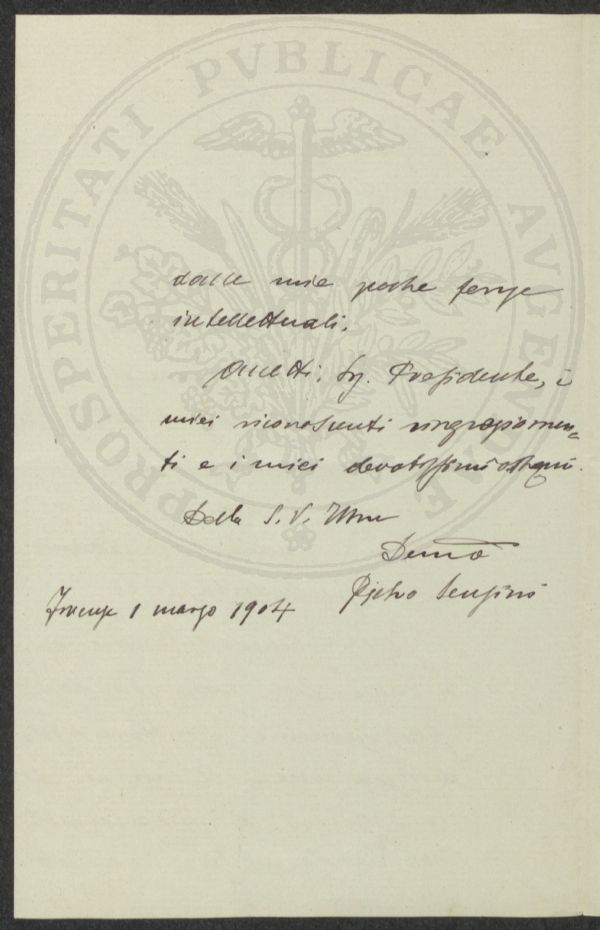 PROSPERITATI PVBLICAE AVGENDAE
dalle mie poche forze
intellettuali.
Accetti, Sig. Presidente, i
miei riconoscenti ringraziamen=
ti e i miei devotissimi ossequi.
Della S. V. Illma
Devmo
Pietro
Firenze 1 marzo 1904